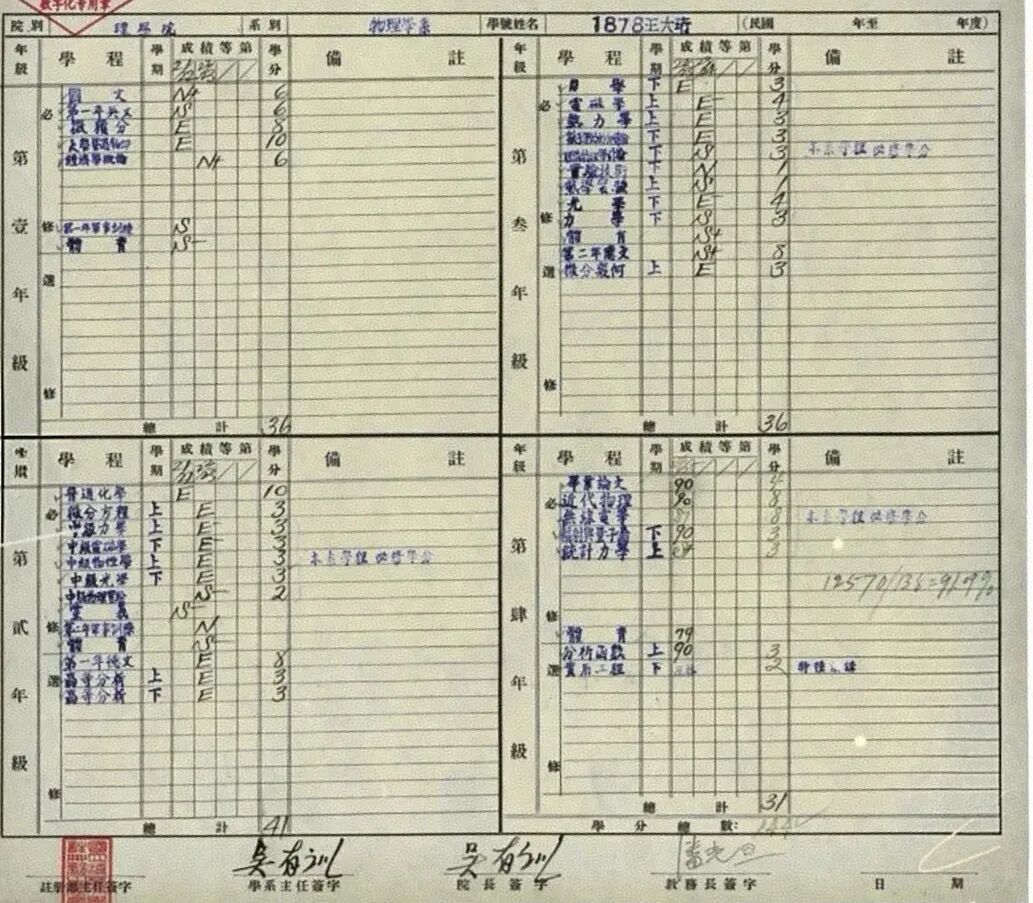 數字化專用章
院別 理學院 系別 物理學系 學號姓名 1878王大珩 (民國 年至 年度)
年級 學程 學期 成績等第 學分 備註
第壹年級
必修
國文 N+ 6
第一年英文 S 6
微積分 E 8
大學普通物理 E 10
經濟學概論 N+ 6
第一年軍事訓練 S
體育 S-
選修
總計 36
年級 學程 學期 成績等第 學分 備註
第叁年級
必修
力學 下 E 3
電磁學 上 E- 4
熱力學 上 E 3
下 E 3
下 S 3 本系學程必修學分
實驗技術 下 N 1
熱學實驗 上 S 1
光學 下 E- 4
力學 下 S 3
體育 S+
第二年德文 S+ 8
選修
微分幾何 上 E 3
總計 36
學程 學期 成績等第 學分 備註
第貳年級
必修
普通化學 E 10
微分方程 上 E 3
中級力學 上 E- 3
中級電磁學 下 E 3
中級物性學 上 E 3 本系學程必修學分
中級光學 下 E 3
中級物理實驗 S- 2
黨義 S-
第二年軍事訓練 N
體育 S-
選修
第一年德文 E 8
高等分析 上 E 3
高等分析 下 E 3
總計 41
年級 學程 學期 成績等第 學分 備註
第肆年級
必修
畢業論文 90 4
近代物理 90 8
無線電學 8 本系學程必修學分
下 90 3
統計力學 上 3
12570/136=91.9%
體育 79
選修
分析函數 上 90 3
實用工程 下 2
總計 31
學分總數:
註冊部主任簽字
吳有訓 學系主任簽字
吳有訓 院長簽字
潘光旦 教務長簽字
日期